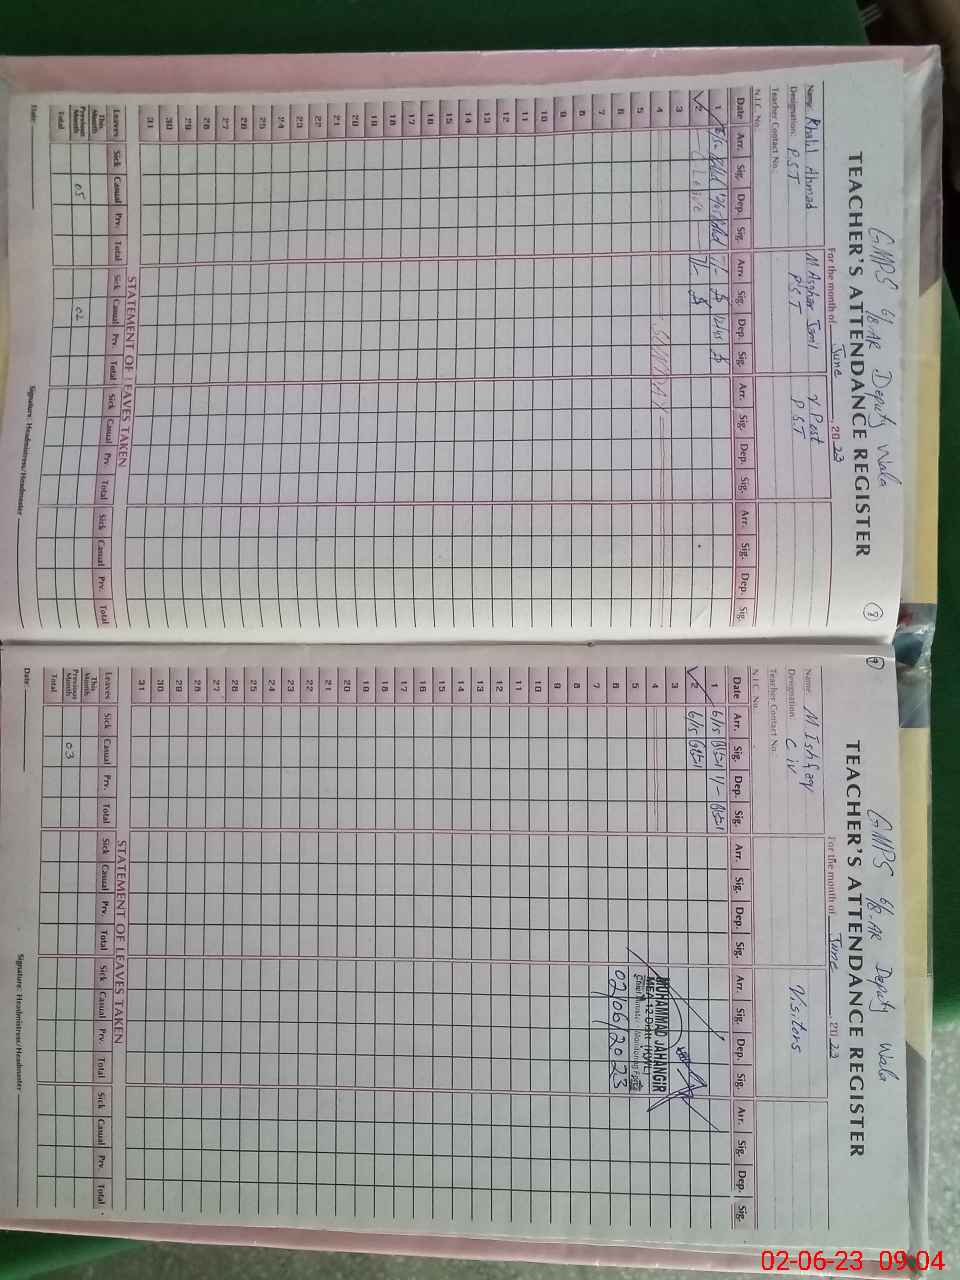 GMPS 6/8-AR Deputy Wala
8
TEACHER'S ATTENDANCE REGISTER
For the month of June, 2023
Name: Khalil Ahmad M Asghar Jaml v Post
Designation: P.S.T P.S.T P.S.T
Teacher Contact No.:
N.I.C. No.
Date Arr. Sig. Dep. Sig. Arr. Sig. Dep. Sig. Arr. Sig. Dep. Sig. Arr. Sig. Dep. Sig.
1
2 C Leave
3
4 SUNDAY
5
6
7
8
9
10
11
12
13
14
15
16
17
18
19
20
21
22
23
24
25
26
27
28
29
30
31
STATEMENT OF LEAVES TAKEN
Leaves Sick Casual Prv. Total Sick Casual Prv. Total Sick Casual Prv. Total Sick Casual Prv. Total
This Month
Previous Month 05 02
Total
Date: Signature: Headmistress/Headmaster
GMPS 6/8-AR Deputy Wala
9
TEACHER'S ATTENDANCE REGISTER
For the month of June, 2023
Name: M Ishfaq Visitors
Designation: C iv
Teacher Contact No.:
N.I.C. No.
Date Arr. Sig. Dep. Sig. Arr. Sig. Dep. Sig. Arr. Sig. Dep. Sig. Arr. Sig. Dep. Sig.
1 6/15
2 6/15
3
4
5
6
7
8
9
10
11
12
13
14
15
16
17
18
19
20
21
22
23
24
25
26
27
28
29
30
31
MUHAMMAD JAHANGIR
MEA 12 Distt (KWL)
02/06/2023
STATEMENT OF LEAVES TAKEN
Leaves Sick Casual Prv. Total Sick Casual Prv. Total Sick Casual Prv. Total Sick Casual Prv. Total
This Month
Previous Month 03
Total
Date: Signature: Headmistress/Headmaster
02-06-23 09:04